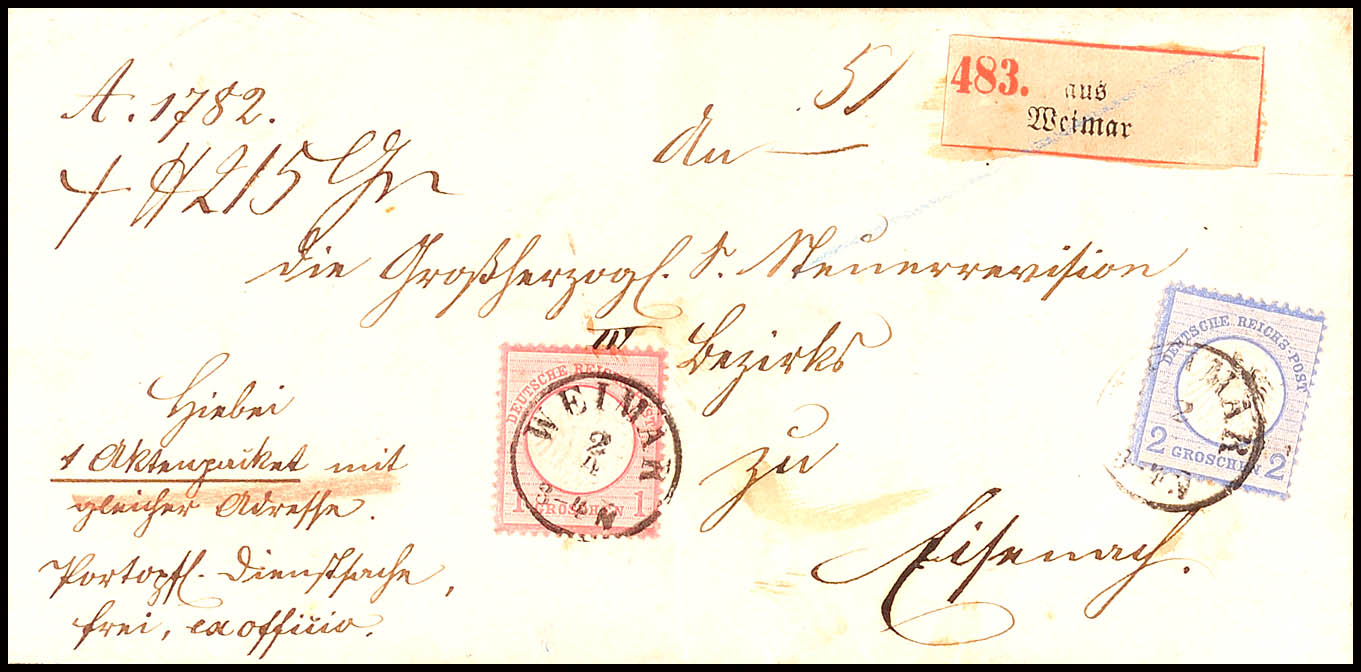 A. 1782.
51
483.
aus
Weimar
An
215 Gr
die Großherzogl. S. Steuerrevision
III Bezirks
zu
Eisenach.
Hiebei
1 Aktenpacket mit
gleicher Adresse.
Portopfl. Dienstsache,
frei, ex officio.
DEUTSCHE REICHS-POST
1 GROSCHEN 1
WEIMAR
2
3-4 N
DEUTSCHE REICHS-POST
2 GROSCHEN 2
IMAR
2
3-4 N